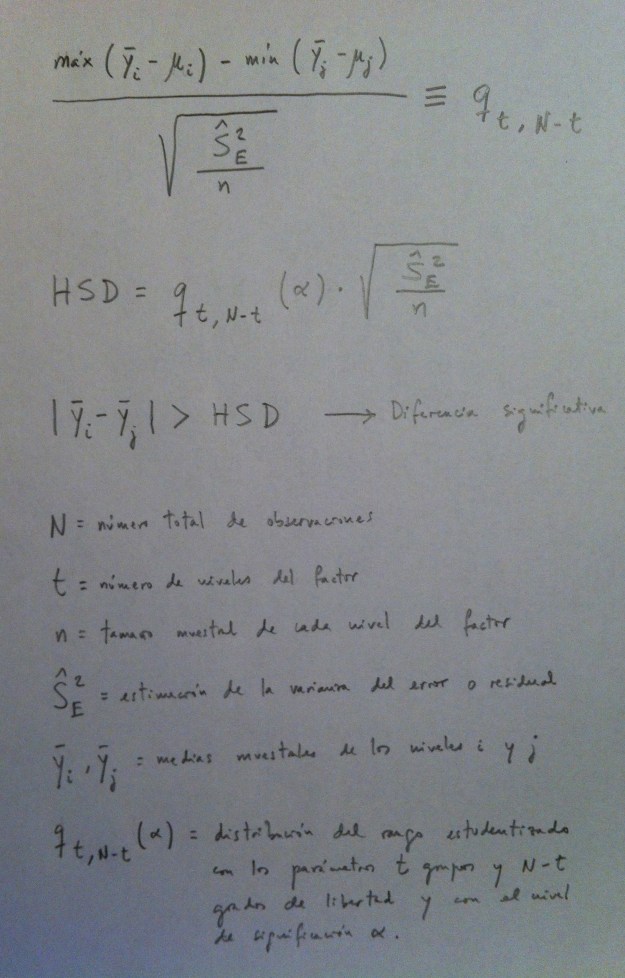 máx (ȳᵢ - μᵢ) - mín (ȳⱼ - μⱼ)
√(Ŝ²_E / n) ≡ q_{t, N-t}
HSD = q_{t, N-t} (α) · √(Ŝ²_E / n)
|ȳᵢ - ȳⱼ| > HSD → Diferencia significativa
N = número total de observaciones
t = número de niveles del factor
n = tamaño muestral de cada nivel del factor
Ŝ²_E = estimación de la varianza del error o residual
ȳᵢ, ȳⱼ = medias muestrales de los niveles i y j
q_{t, N-t} (α) = distribución del rango estudentizado
con los parámetros t grupos y N-t
grados de libertad y con el nivel
de significación α.